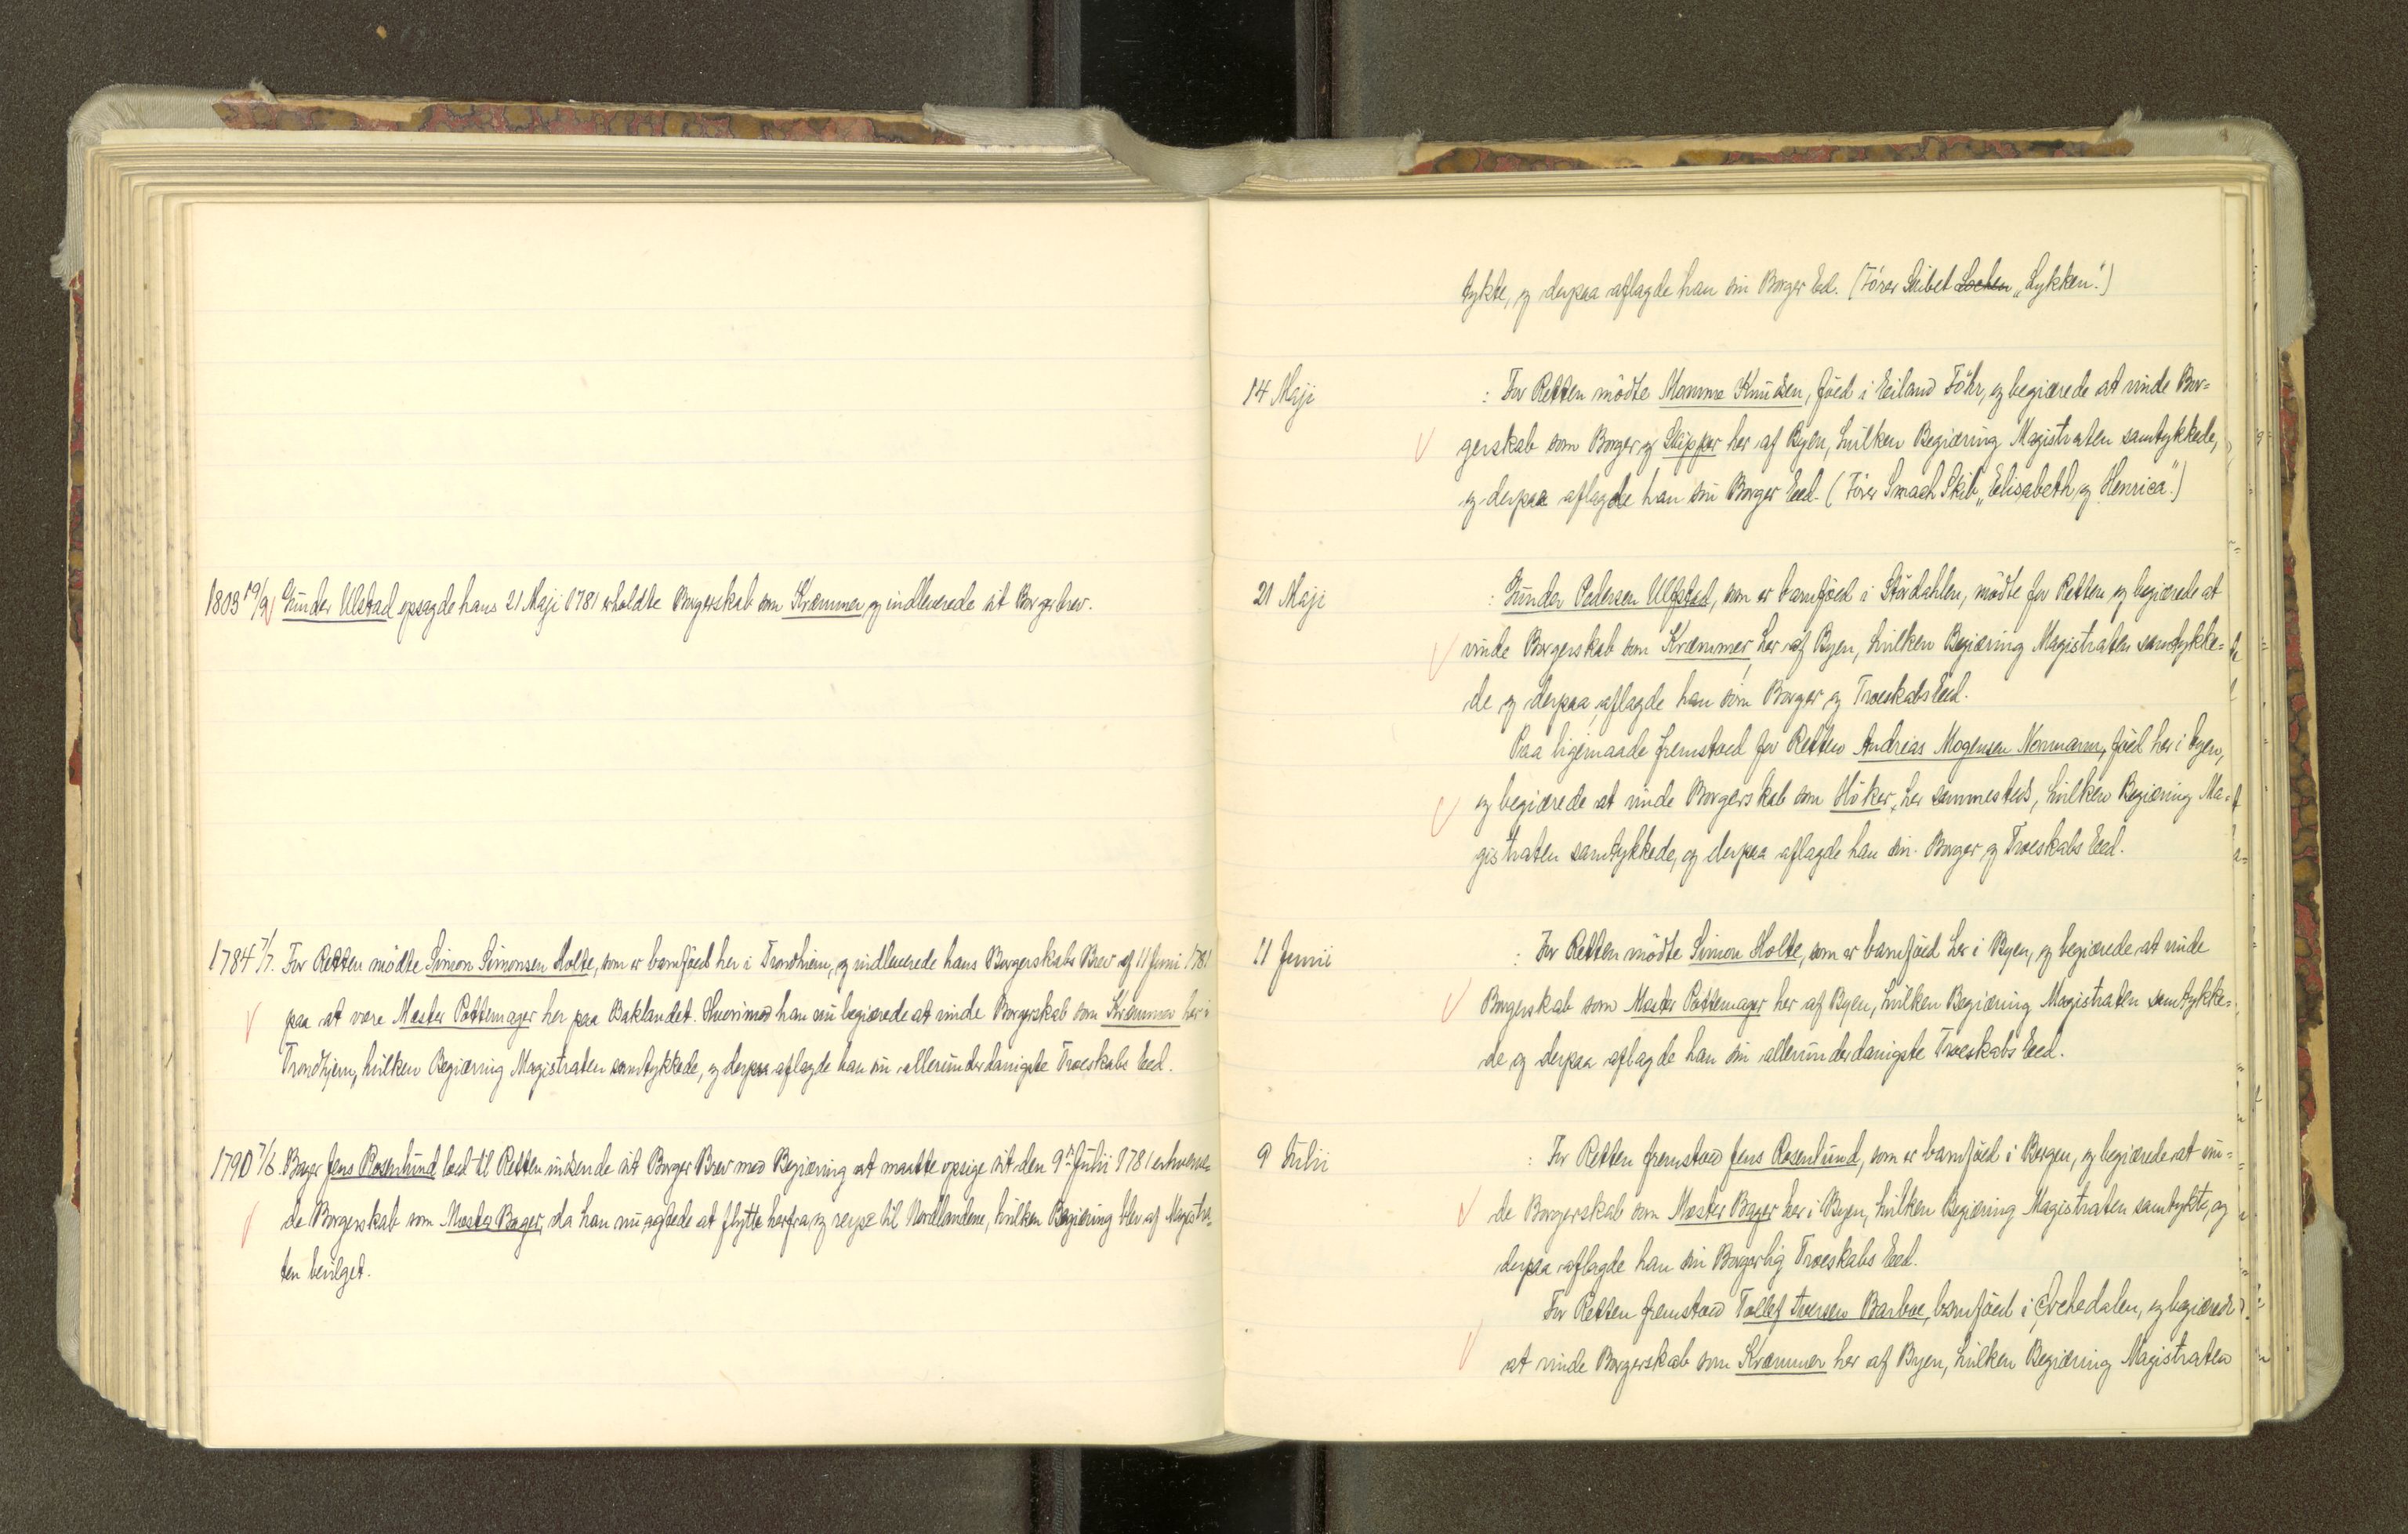 1803 19/9 Gunder Ulstad opsagde hans 21 Maji 1781 erholdte Borgerskab som Kræmmer, og indleverede sit Borgerbrev.
1784 7/7. For Retten mödte Simon Simonsen Holte, som er barnföed her i Trondhiem, og indleverede hans Borgerskabs Brev af 11 Junii 1781
paa at være Mester Pottemager her paa Baklandet. Hvorimod han nu begiærede at vinde Borgerskab som Kræmmer her i
Trondhjem, hvilken Begiæring Magistraten samtykkede, og derpaa aflagde han sin allerunderdanigste Troeskabs Eed.
1790 7/6. Bager Jens Rosenlund loed til Retten indsende sit Borger Brev med Begiæring at maatte opsige sit den 9de Julii 1781 erhverve-
de Borgerskab som Mester Bager, da han nu agtede at flytte herfra, og reyse til Nordlandene, hvilken Begiæring blev af Magistra-
ten bevilget.
tykte, og derpaa aflagde han sin Borger Eed. (Förer Skibet Lochen „Lykken".)
14 Maji : For Retten mödte Momme Knudsen, föed i Eiland Föhr, og begiærede at vinde Bor=
gerskab som Borger og Skipper her af Byen, hvilken Begiæring Magistraten samtykkede,
og derpaa aflagde han sin Borger Eed. (Förer Smach Skib „Elisabeth og Henrica".)
21 Maji : Gunder Pedersen Ulfstad, som er barnföed i Stördahlen, mödte for Retten og begiærede at
vinde Borgerskab som Kræmmer her af Byen, hvilken Begiæring Magistraten samtykke=
de og derpaa aflagde han sin Borger og Troeskabs Eed.
Paa ligemaade fremstoed for Retten Andreas Mogensen Normann, föed her i byen,
og begiærede at vinde Borgerskab som Höker her sammesteds, hvilken Begiæring Ma=
gistraten samtykkede, og derpaa aflagde han sin Borger og Troeskabs Eed.
11 Junii : For Retten mödte Simon Holte, som er barnföed her i Byen, og begiærede at vinde
Borgerskab som Mester Pottemager her af Byen, hvilken Begiæring Magistraten samtykke=
de og derpaa aflagde han sin allerunderdanigste Troeskabs Eed.
9 Julii : For Retten fremstod Jens Rosenlund, som er barnföed i Bergen, og begiærede at vin=
de Borgerskab som Mester Bager her i Byen, hvilken Begiæring Magistraten samtykte, og
derpaa aflagde han sin Borgerlig Troeskabs Eed.
For Retten fremstod Tollef Iversen Barboe, barnföed i Orchedalen, og begiærede
at vinde Borgerskab som Kræmmer her af Byen, hvilken Begiæring Magistraten